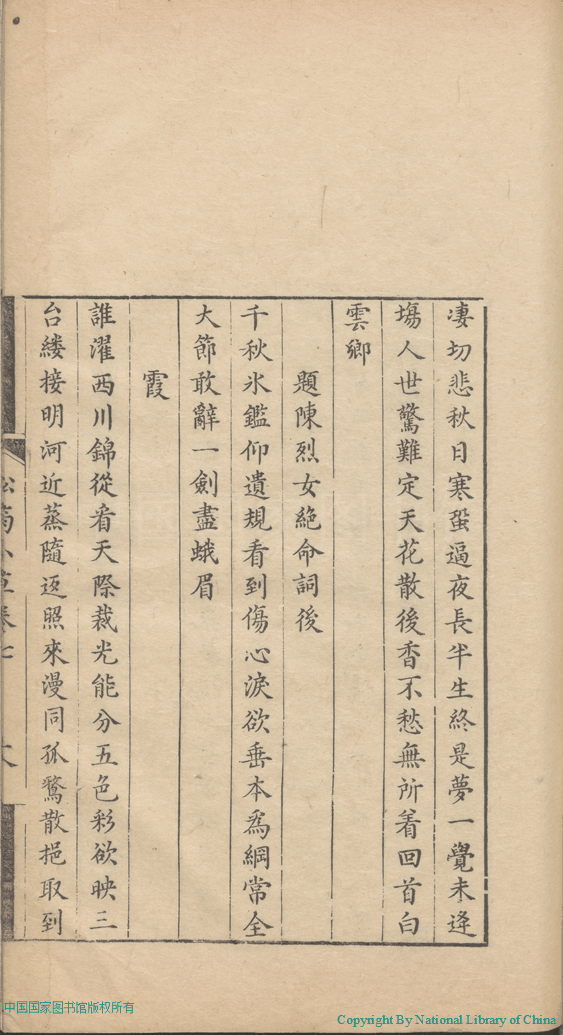 凄切悲秋日寒螀逼夜長半生終是夢一覺未逢
塲人世驚難定天花散後香不愁無所着回首白
雲鄉
題陳烈女絶命詞後
千秋氷鑑仰遺規看到傷心淚欲垂本爲綱常全
大節敢辭一劍盡蛾眉
霞
誰濯西川錦從看天際裁光能分五色彩欲映三
台縷接明河近蒸隨返照來漫同孤鶩散挹取到
卷七
中国国家图书馆版权所有
Copyright By National Library of China